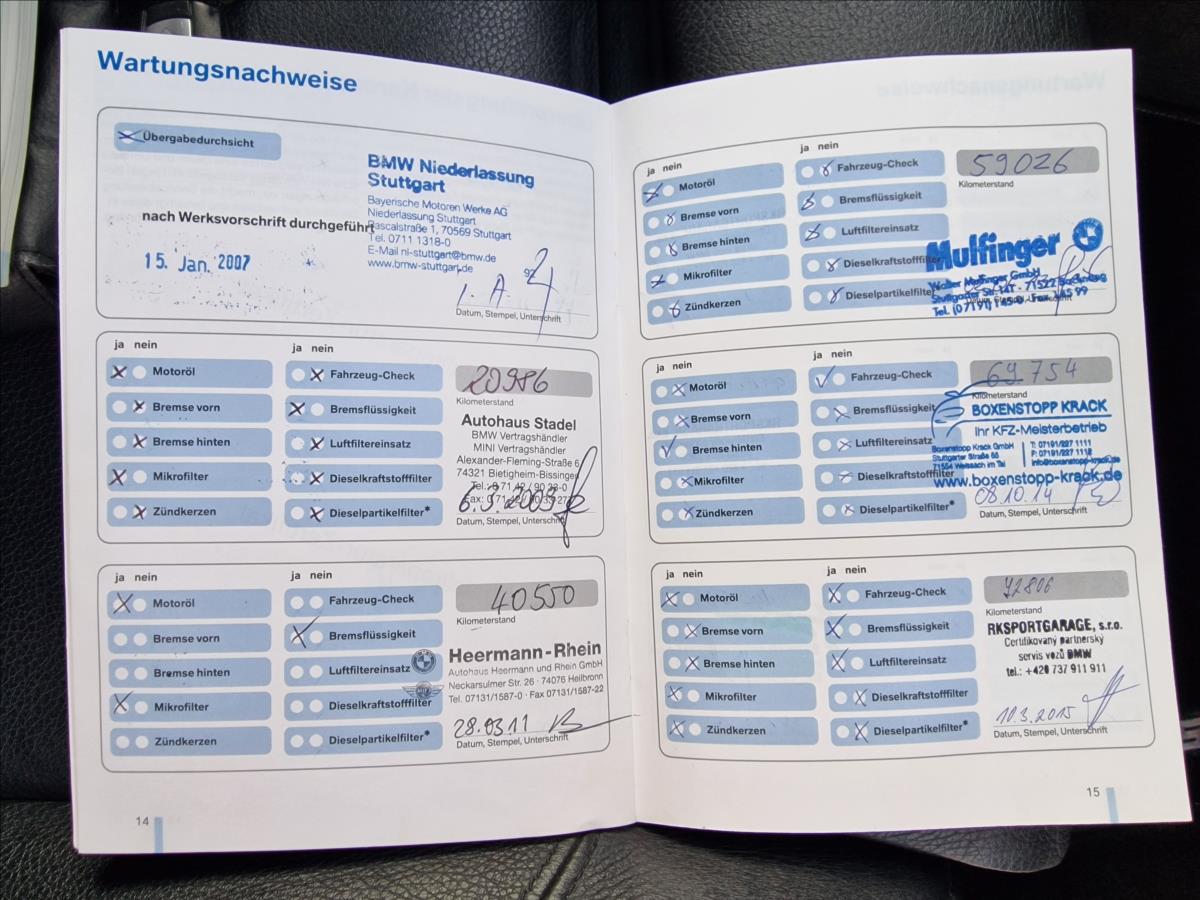 Wartungsnachweise
Übergabedurchsicht
nach Werksvorschrift durchgeführt
15. Jan. 2007
BMW Niederlassung
Stuttgart
Bayerische Motoren Werke AG
Niederlassung Stuttgart
Pascalstraße 1, 70569 Stuttgart
Tel. 0711 1318-0
E-Mail nl-stuttgart@bmw.de
www.bmw-stuttgart.de
92
i. A.
Datum, Stempel, Unterschrift
ja nein
ja nein
Motoröl
Fahrzeug-Check
20986
Bremse vorn
Bremsflüssigkeit
Kilometerstand
Bremse hinten
Luftfiltereinsatz
Mikrofilter
Dieselkraftstofffilter
Zündkerzen
Dieselpartikelfilter*
Autohaus Stadel
BMW Vertragshändler
MINI Vertragshändler
Alexander-Fleming-Straße 6
74321 Bietigheim-Bissingen
Datum, Stempel, Unterschrift
ja nein
ja nein
Motoröl
Fahrzeug-Check
40550
Bremse vorn
Bremsflüssigkeit
Kilometerstand
Bremse hinten
Luftfiltereinsatz
Mikrofilter
Dieselkraftstofffilter
Zündkerzen
Dieselpartikelfilter*
Heermann-Rhein
Autohaus Heermann und Rhein GmbH
Neckarsulmer Str. 26 · 74076 Heilbronn
Tel. 07131/1587-0 · Fax 07131/1587-22
28.03.11
Datum, Stempel, Unterschrift
14
ja nein
ja nein
Motoröl
Fahrzeug-Check
59026
Bremse vorn
Bremsflüssigkeit
Kilometerstand
Bremse hinten
Luftfiltereinsatz
Mikrofilter
Dieselkraftstofffilter
Zündkerzen
Dieselpartikelfilter*
Mulfinger
Walter Mulfinger GmbH
ja nein
ja nein
Motoröl
Fahrzeug-Check
69.754
Bremse vorn
Bremsflüssigkeit
Kilometerstand
Bremse hinten
Luftfiltereinsatz
Mikrofilter
Dieselkraftstofffilter
Zündkerzen
Dieselpartikelfilter*
BOXENSTOPP KRACK
Ihr KFZ-Meisterbetrieb
Boxenstopp Krack GmbH
Stuttgarter Straße
71554 Weissach im Tal
T: 07191/227 1111
F: 07191/227 1112
info@boxenstopp-krack.de
www.boxenstopp-krack.de
08.10.14
Datum, Stempel, Unterschrift
ja nein
ja nein
Motoröl
Fahrzeug-Check
72806
Bremse vorn
Bremsflüssigkeit
Kilometerstand
Bremse hinten
Luftfiltereinsatz
Mikrofilter
Dieselkraftstofffilter
Zündkerzen
Dieselpartikelfilter*
RKSPORTGARAGE, s.r.o.
Certifikovaný partnerský
servis vozů BMW
tel.: +420 737 911 911
10.3.2015
Datum, Stempel, Unterschrift
15